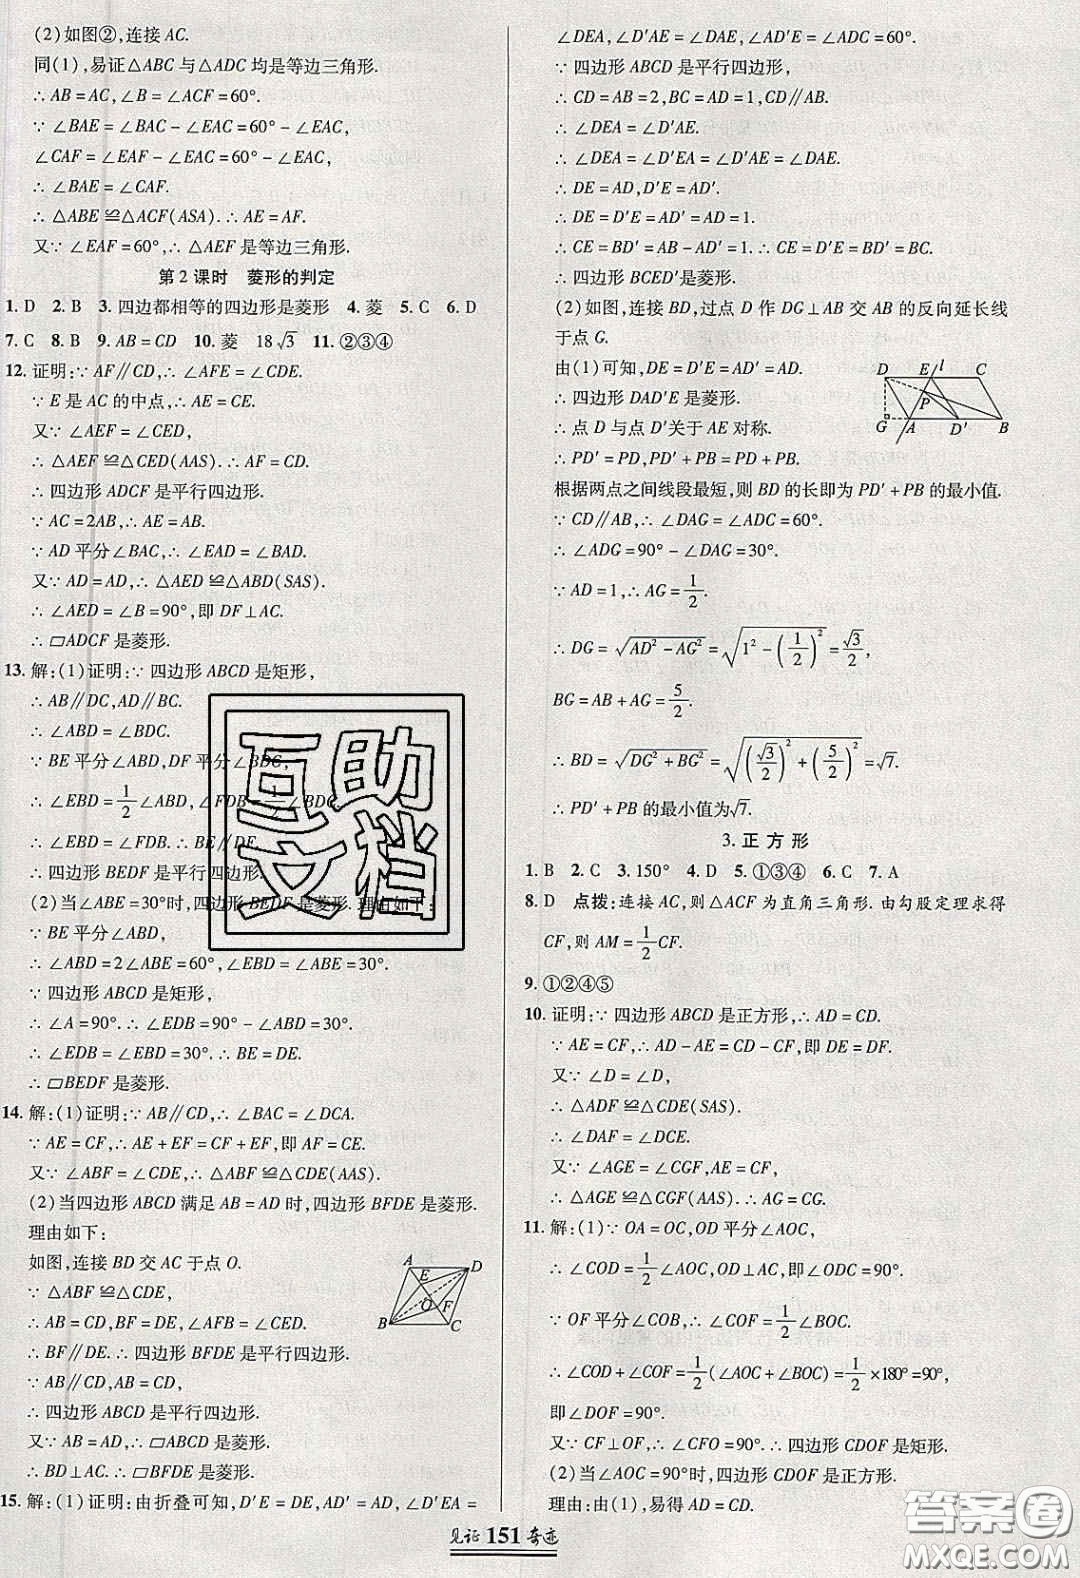 (2)如图②,连接 AC.
同(1),易证△ABC 与△ADC 均是等边三角形.
∴ AB = AC, ∠B = ∠ACF = 60°.
∵ ∠BAE = ∠BAC - ∠EAC = 60° - ∠EAC,
∠CAF = ∠EAF - ∠EAC = 60° - ∠EAC,
∴ ∠BAE = ∠CAF.
∴ △ABE ≌ △ACF(ASA). ∴ AE = AF.
又∵ ∠EAF = 60°, ∴ △AEF 是等边三角形.
第 2 课时 菱形的判定
1. D 2. B 3. 四边都相等的四边形是菱形 4. 菱 5. C 6. D
7. C 8. B 9. AB = CD 10. 菱 18√3 11. ②③④
12. 证明:∵ AF∥CD, ∴ ∠AFE = ∠CDE.
∵ E 是 AC 的中点, ∴ AE = CE.
又∵ ∠AEF = ∠CED,
∴ △AEF ≌ △CED(AAS). ∴ AF = CD.
∴ 四边形 ADCF 是平行四边形.
∵ AC = 2AB, ∴ AE = AB.
∵ AD 平分∠BAC, ∴ ∠EAD = ∠BAD.
又∵ AD = AD, ∴ △AED ≌ △ABD(SAS).
∴ ∠AED = ∠B = 90°,即 DF⊥AC.
∴ ▱ADCF 是菱形.
13. 解:(1)证明:∵ 四边形 ABCD 是矩形,
∴ AB∥DC, AD∥BC.
∴ ∠ABD = ∠BDC.
∵ BE 平分∠ABD, DF 平分∠BDC,
∴ ∠EBD = 1/2 ∠ABD, ∠FDB = 1/2 ∠BDC.
∴ ∠EBD = ∠FDB. ∴ BE∥DF.
∴ 四边形 BEDF 是平行四边形.
(2)当∠ABE = 30°时,四边形 BEDF 是菱形. 理由如下:
∵ BE 平分∠ABD,
∴ ∠ABD = 2∠ABE = 60°, ∠EBD = ∠ABE = 30°.
∵ 四边形 ABCD 是矩形,
∴ ∠A = 90°. ∴ ∠EDB = 90° - ∠ABD = 30°.
∴ ∠EDB = ∠EBD = 30°. ∴ BE = DE.
∴ ▱BEDF 是菱形.
14. 解:(1)证明:∵ AB∥CD, ∴ ∠BAC = ∠DCA.
∵ AE = CF, ∴ AE + EF = CF + EF,即 AF = CE.
又∵ ∠ABF = ∠CDE, ∴ △ABF ≌ △CDE(AAS).
(2)当四边形 ABCD 满足 AB = AD 时,四边形 BFDE 是菱形.
理由如下:
如图,连接 BD 交 AC 于点 O.
∵ △ABF ≌ △CDE,
∴ AB = CD, BF = DE, ∠AFB = ∠CED.
∴ BF∥DE. ∴ 四边形 BFDE 是平行四边形.
∵ AB∥CD, AB = CD,
∴ 四边形 ABCD 是平行四边形.
又∵ AB = AD, ∴ ▱ABCD 是菱形.
∴ BD⊥AC. ∴ ▱BFDE 是菱形.
A D E O F B C
15. 解:(1)证明:由折叠可知, D′E = DE, AD′ = AD, ∠D′EA =
∠DEA, ∠D′AE = ∠DAE, ∠AD′E = ∠ADC = 60°.
∵ 四边形 ABCD 是平行四边形,
∴ CD = AB = 2, BC = AD = 1, CD∥AB.
∴ ∠DEA = ∠D′AE.
∴ ∠DEA = ∠D′EA = ∠D′AE = ∠DAE.
∴ DE = AD, D′E = AD′.
∴ DE = D′E = AD′ = AD = 1.
∴ CE = BD′ = AD = 1. ∴ CE = D′E = BD′ = BC.
∴ 四边形 BCED′是菱形.
(2)如图,连接 BD,过点 D 作 DG⊥AB 交 AB 的反向延长线
于点 G.
由(1)可知, DE = D′E = AD′ = AD.
∴ 四边形 DAD′E 是菱形.
∴ 点 D 与点 D′关于 AE 对称.
∴ PD′ = PD, PD′ + PB = PD + PB.
D E l C P G A D′ B
根据两点之间线段最短,则 BD 的长即为 PD′ + PB 的最小值.
∵ CD∥AB, ∴ ∠DAG = ∠ADC = 60°.
∴ ∠ADG = 90° - ∠DAG = 30°.
∵ AD = 1, ∴ AG = 1/2.
∴ DG = √(AD² - AG²) = √(1² - (1/2)²) = √3/2,
BG = AB + AG = 5/2.
∴ BD = √(DG² + BG²) = √((√3/2)² + (5/2)²) = √7.
∴ PD′ + PB 的最小值为√7.
3. 正方形
1. B 2. C 3. 150° 4. D 5. ①③④ 6. C 7. A
8. D 点拨:连接 AC,则△ACF 为直角三角形. 由勾股定理求得
CF,则 AM = 1/2 CF.
9. ①②④⑤
10. 证明:∵ 四边形 ABCD 是正方形, ∴ AD = CD.
∵ AE = CF, ∴ AD - AE = CD - CF,即 DE = DF.
又∵ ∠D = ∠D,
∴ △ADF ≌ △CDE(SAS).
∴ ∠DAF = ∠DCE.
又∵ ∠AGE = ∠CGF, AE = CF,
∴ △AGE ≌ △CGF(AAS). ∴ AG = CG.
11. 解:(1)∵ OA = OC, OD 平分∠AOC,
∴ ∠COD = 1/2 ∠AOC, OD⊥AC,即∠ODC = 90°.
∵ OF 平分∠COB, ∴ ∠COF = 1/2 ∠BOC.
∴ ∠COD + ∠COF = 1/2(∠AOC + ∠BOC) = 1/2 × 180° = 90°,
即∠DOF = 90°.
又∵ CF⊥OF, ∴ ∠CFO = 90°. ∴ 四边形 CDOF 是矩形.
(2)当∠AOC = 90°时,四边形 CDOF 是正方形.
理由:由(1),易得 AD = CD.
见证 151 奇迹
互助文档
答案圈
MXQE.COM